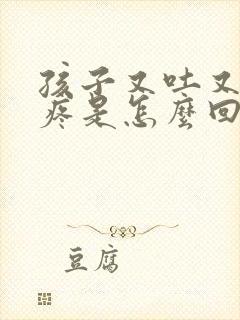 孩子又吐又
疼是怎麼回
豆腐